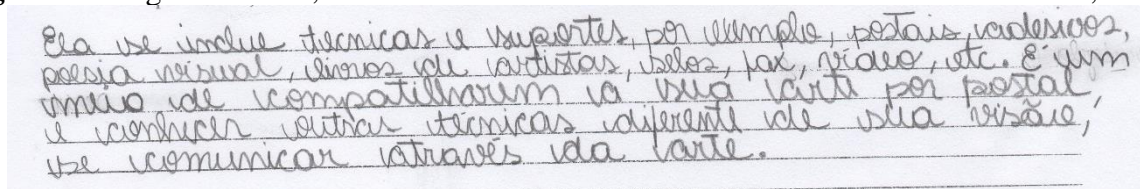 Ela se inclue tecnicas e suportes, por exemplo, postais, adesivos,
poesia visual, livros de artistas, selos, fax, vídeo, etc. É um
meio de compatilharem a sua arte por postal,
e conhecer outras técnicas diferente de sua visão,
se comunicar através da arte.